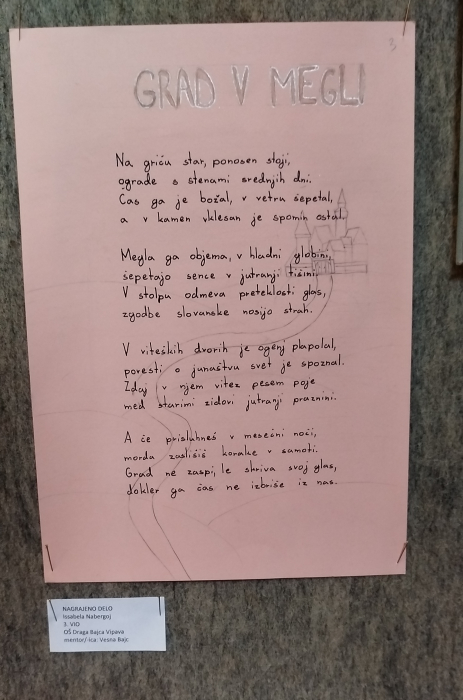 3
GRAD V MEGLI
Na griču star, ponosen stoji,
ograde s stenami srednjih dni.
Čas ga je božal, v vetru šepetal,
a v kamen vklesan je spomin ostal.
Megla ga objema, v hladni globini,
šepetajo sence v jutranji tišini.
V stolpu odmeva preteklosti glas,
zgodbe slovanske nosijo strah.
V viteških dvorih je ogenj plapolal,
povesti o junaštvu svet je spoznal.
Zdaj v njem vitez pesem poje
med starimi zidovi jutranji praznini.
A če prisluhneš v mesečni noči,
morda zaslišiš korake v samoti.
Grad ne zaspi, le skriva svoj glas,
dokler ga čas ne izbriše iz nas.
NAGRAJENO DELO
Issabela Nabergoj
3. VIO
OŠ Draga Bajca Vipava
mentor/-ica: Vesna Bajc